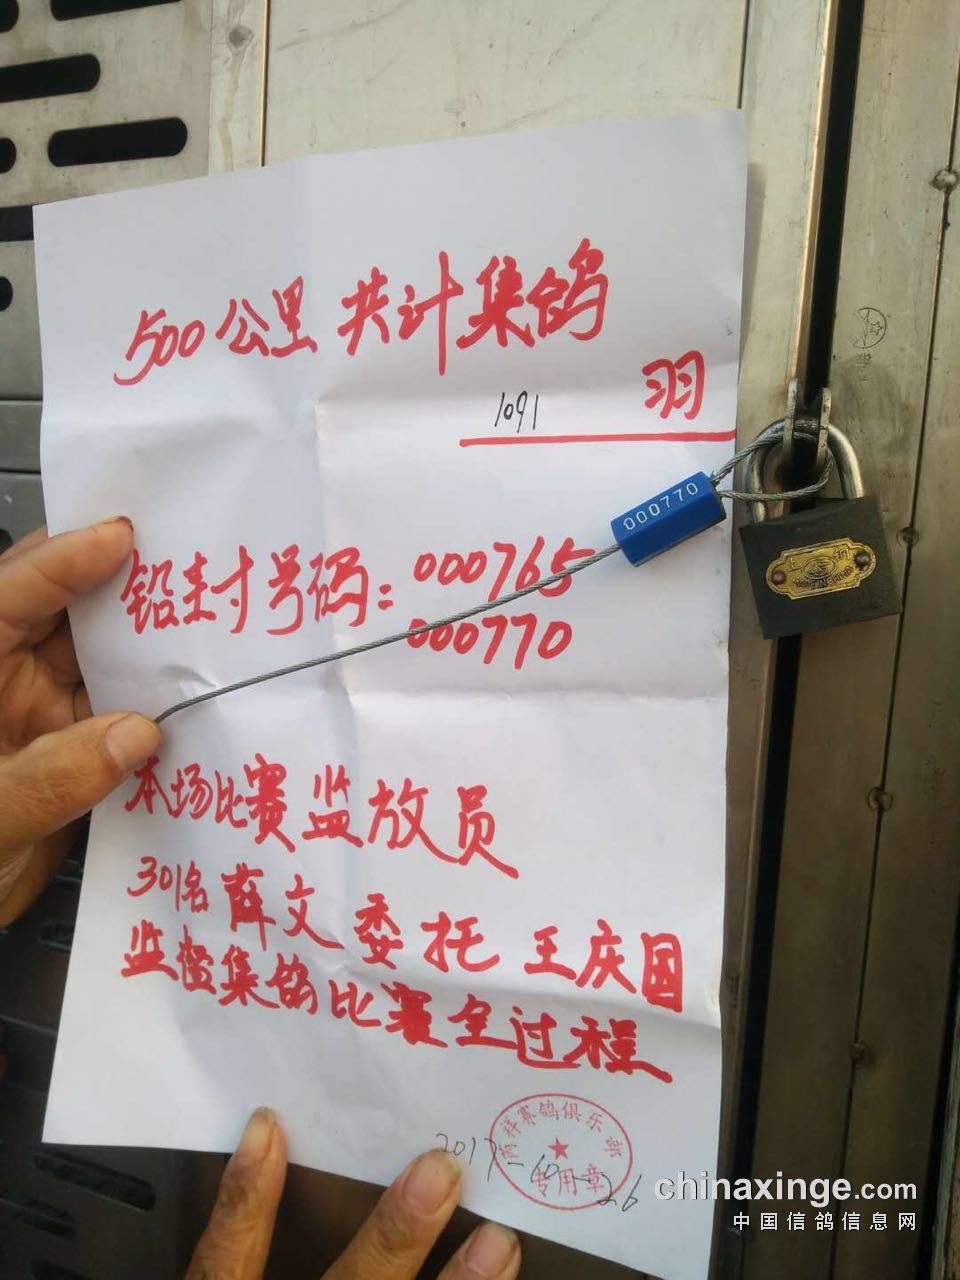 500公里 共计集鸽
1091 羽
000770
铅封号码：000765
000770
上 铜
MADE IN CHINA
本场比赛监放员
301名 薛文 委托 王庆国
监督集鸽比赛全过程
祥赛鸽俱乐部
专用章
2017-10-26
chinaxinge.com
中国信鸽信息网